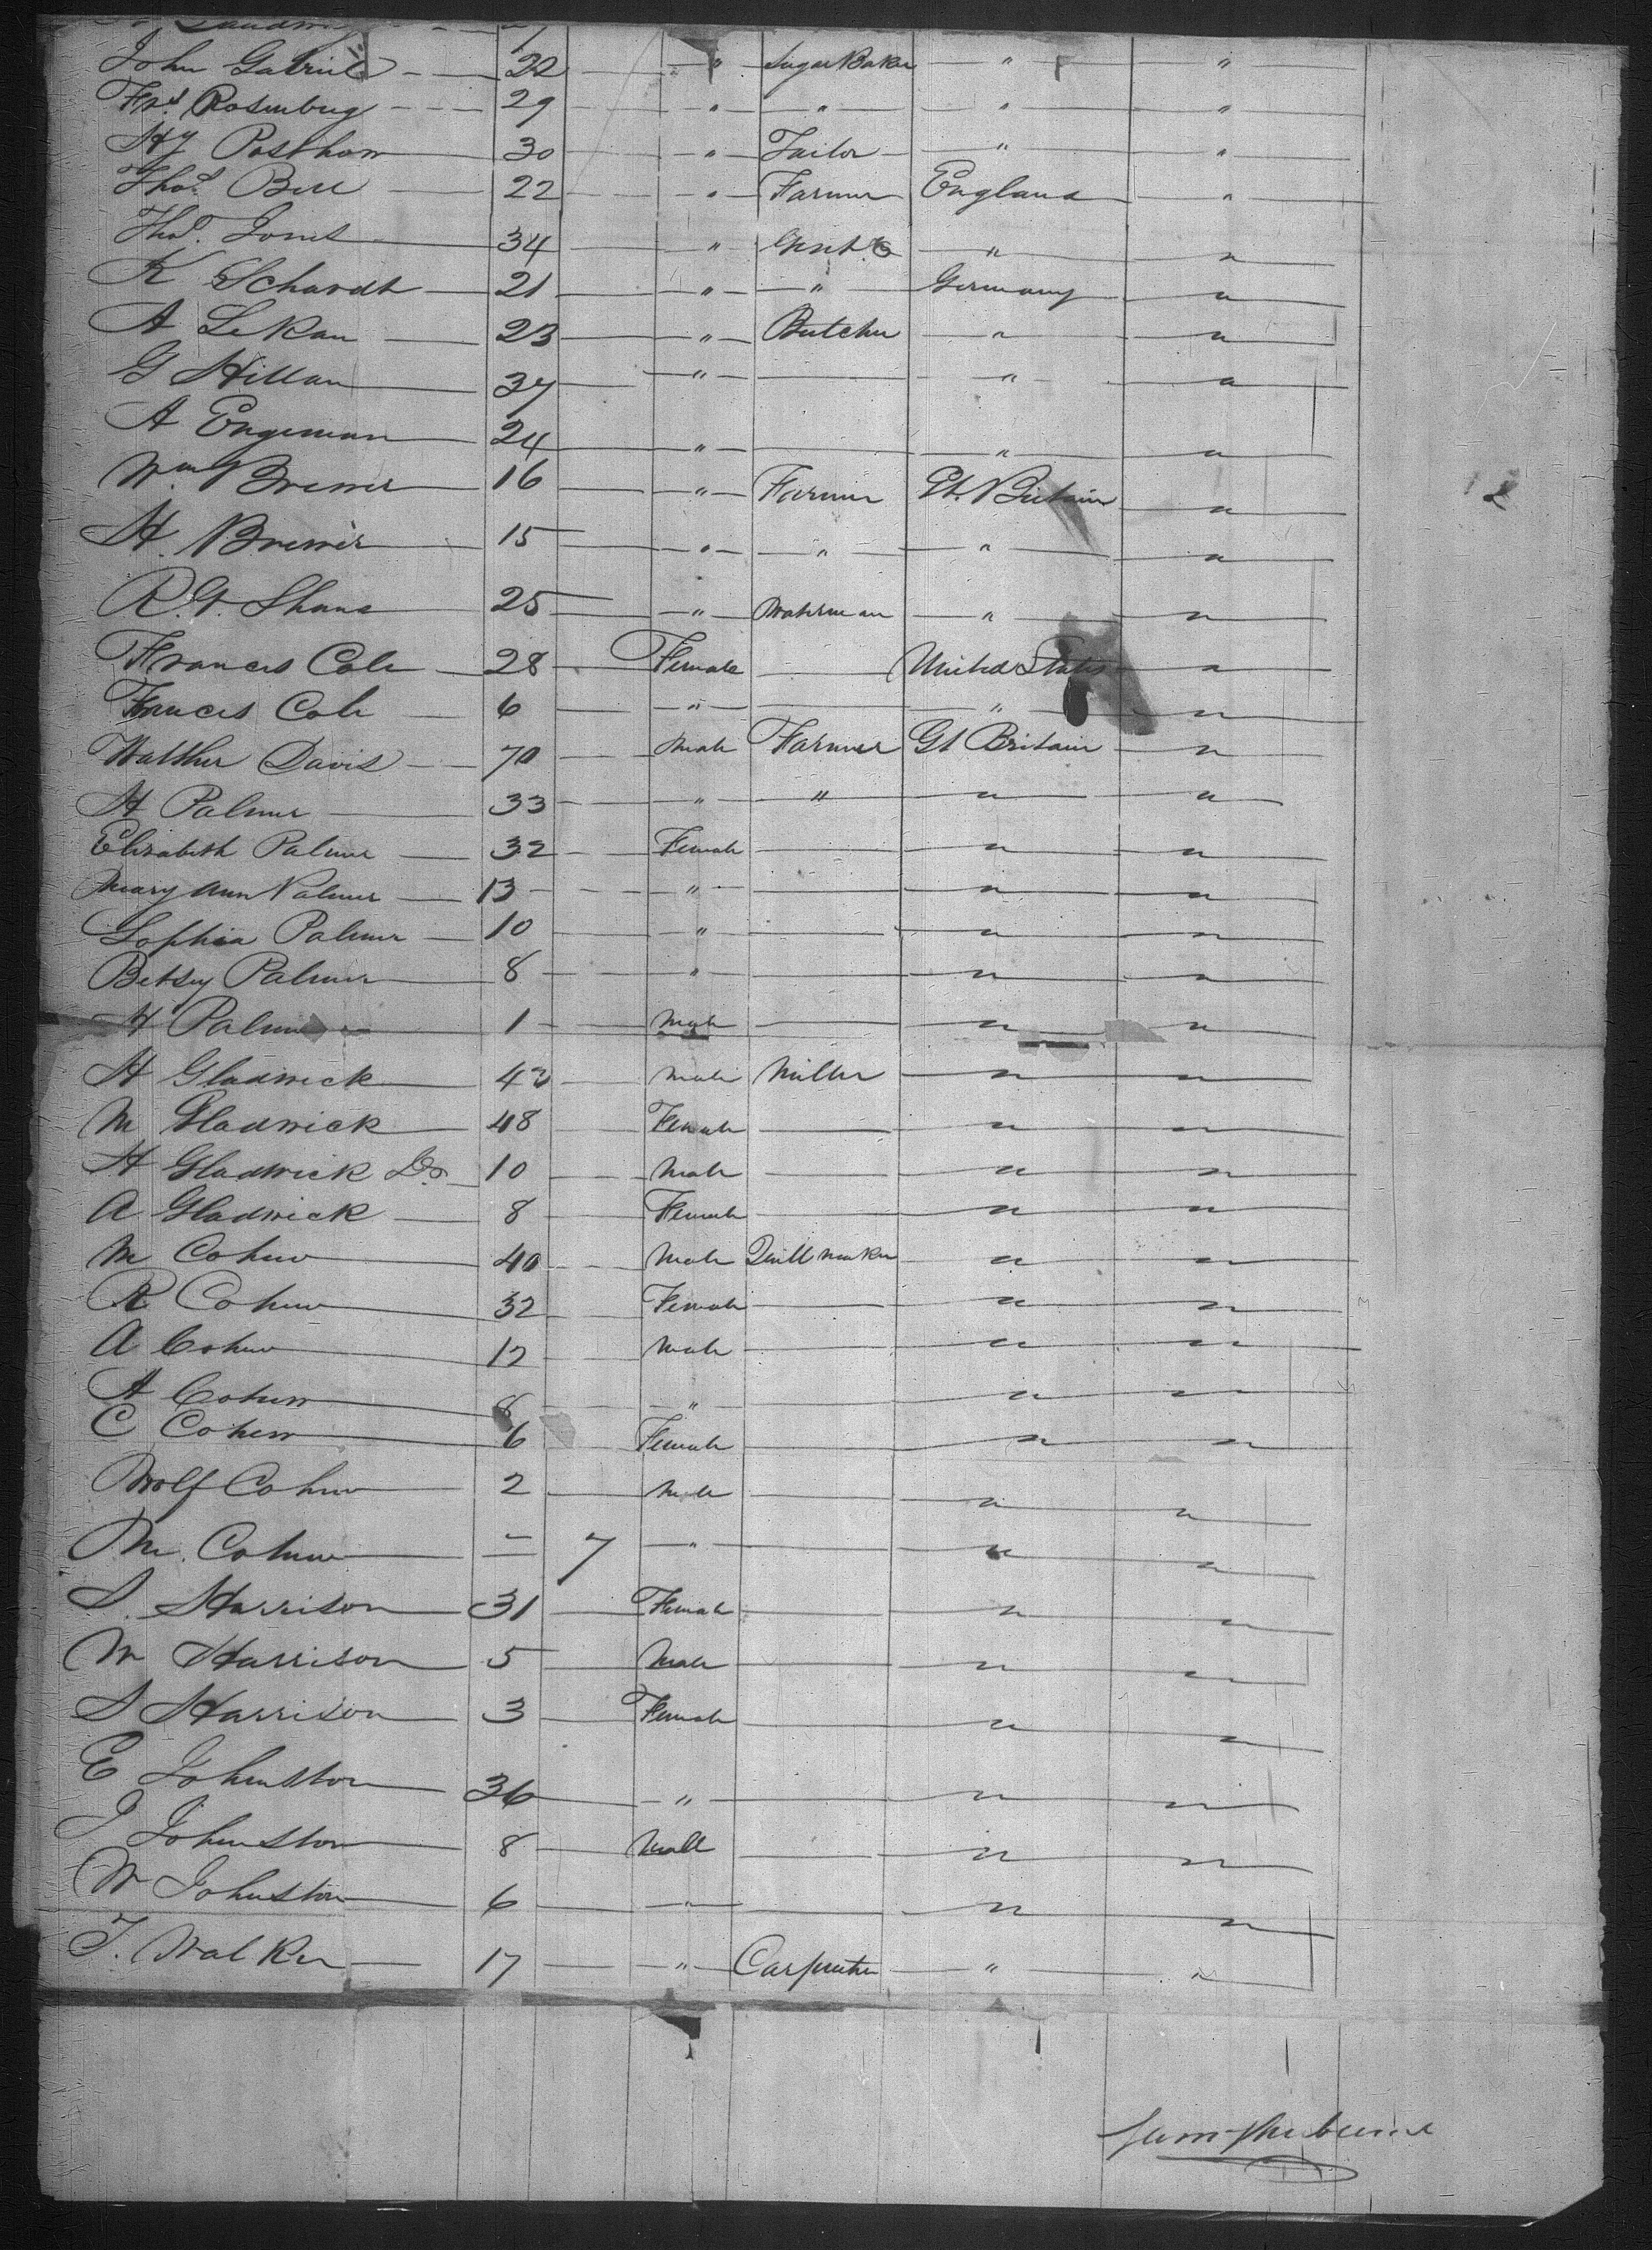 John Gabriel 22 " Sugar Baker " "
Fred Rosenburg 29 " " " "
Hy Posthom 30 " Tailor " "
Thos. Bell 22 " Farmer England "
Thos. Jones 34 " Gent "
K Schardt 21 " " Germany "
A LeKau 23 " Butcher " "
G Hillan 37 " " "
A Engeman 24 " " "
Wm Brewer 16 " Farmer Gt. Britain "
H. Brewer 15 " " " "
25 " Waterman " "
Frances Cole 28 Female United States "
Frances Cole 6 " " "
Walther Davis 70 Male Farmer Gt Britain "
H Palmer 33 " " " "
Elizabeth Palmer 32 Female " "
Mary Ann Palmer 13 " " "
Sophia Palmer 10 " " "
Betsy Palmer 8 " " "
H Palmer 1 Male " "
H Gladwick 42 Male Miller " "
M Gladwick 48 Female " "
H Gladwick Do 10 Male " "
A Gladwick 8 Female " "
M Cohen 40 Male Quill maker " "
R Cohen 32 Female " "
A Cohen 12 Male " "
A Cohen 8 " " "
C Cohen 6 Female " "
Wolf Cohen 2 Male " "
M. Cohen 7 " " "
S. Harrison 31 Female " "
W Harrison 5 Male " "
S Harrison 3 Female " "
E Johnston 36 " " "
J Johnston 8 Male " "
W Johnston 6 " " "
T. Walker 17 " Carpenter " "